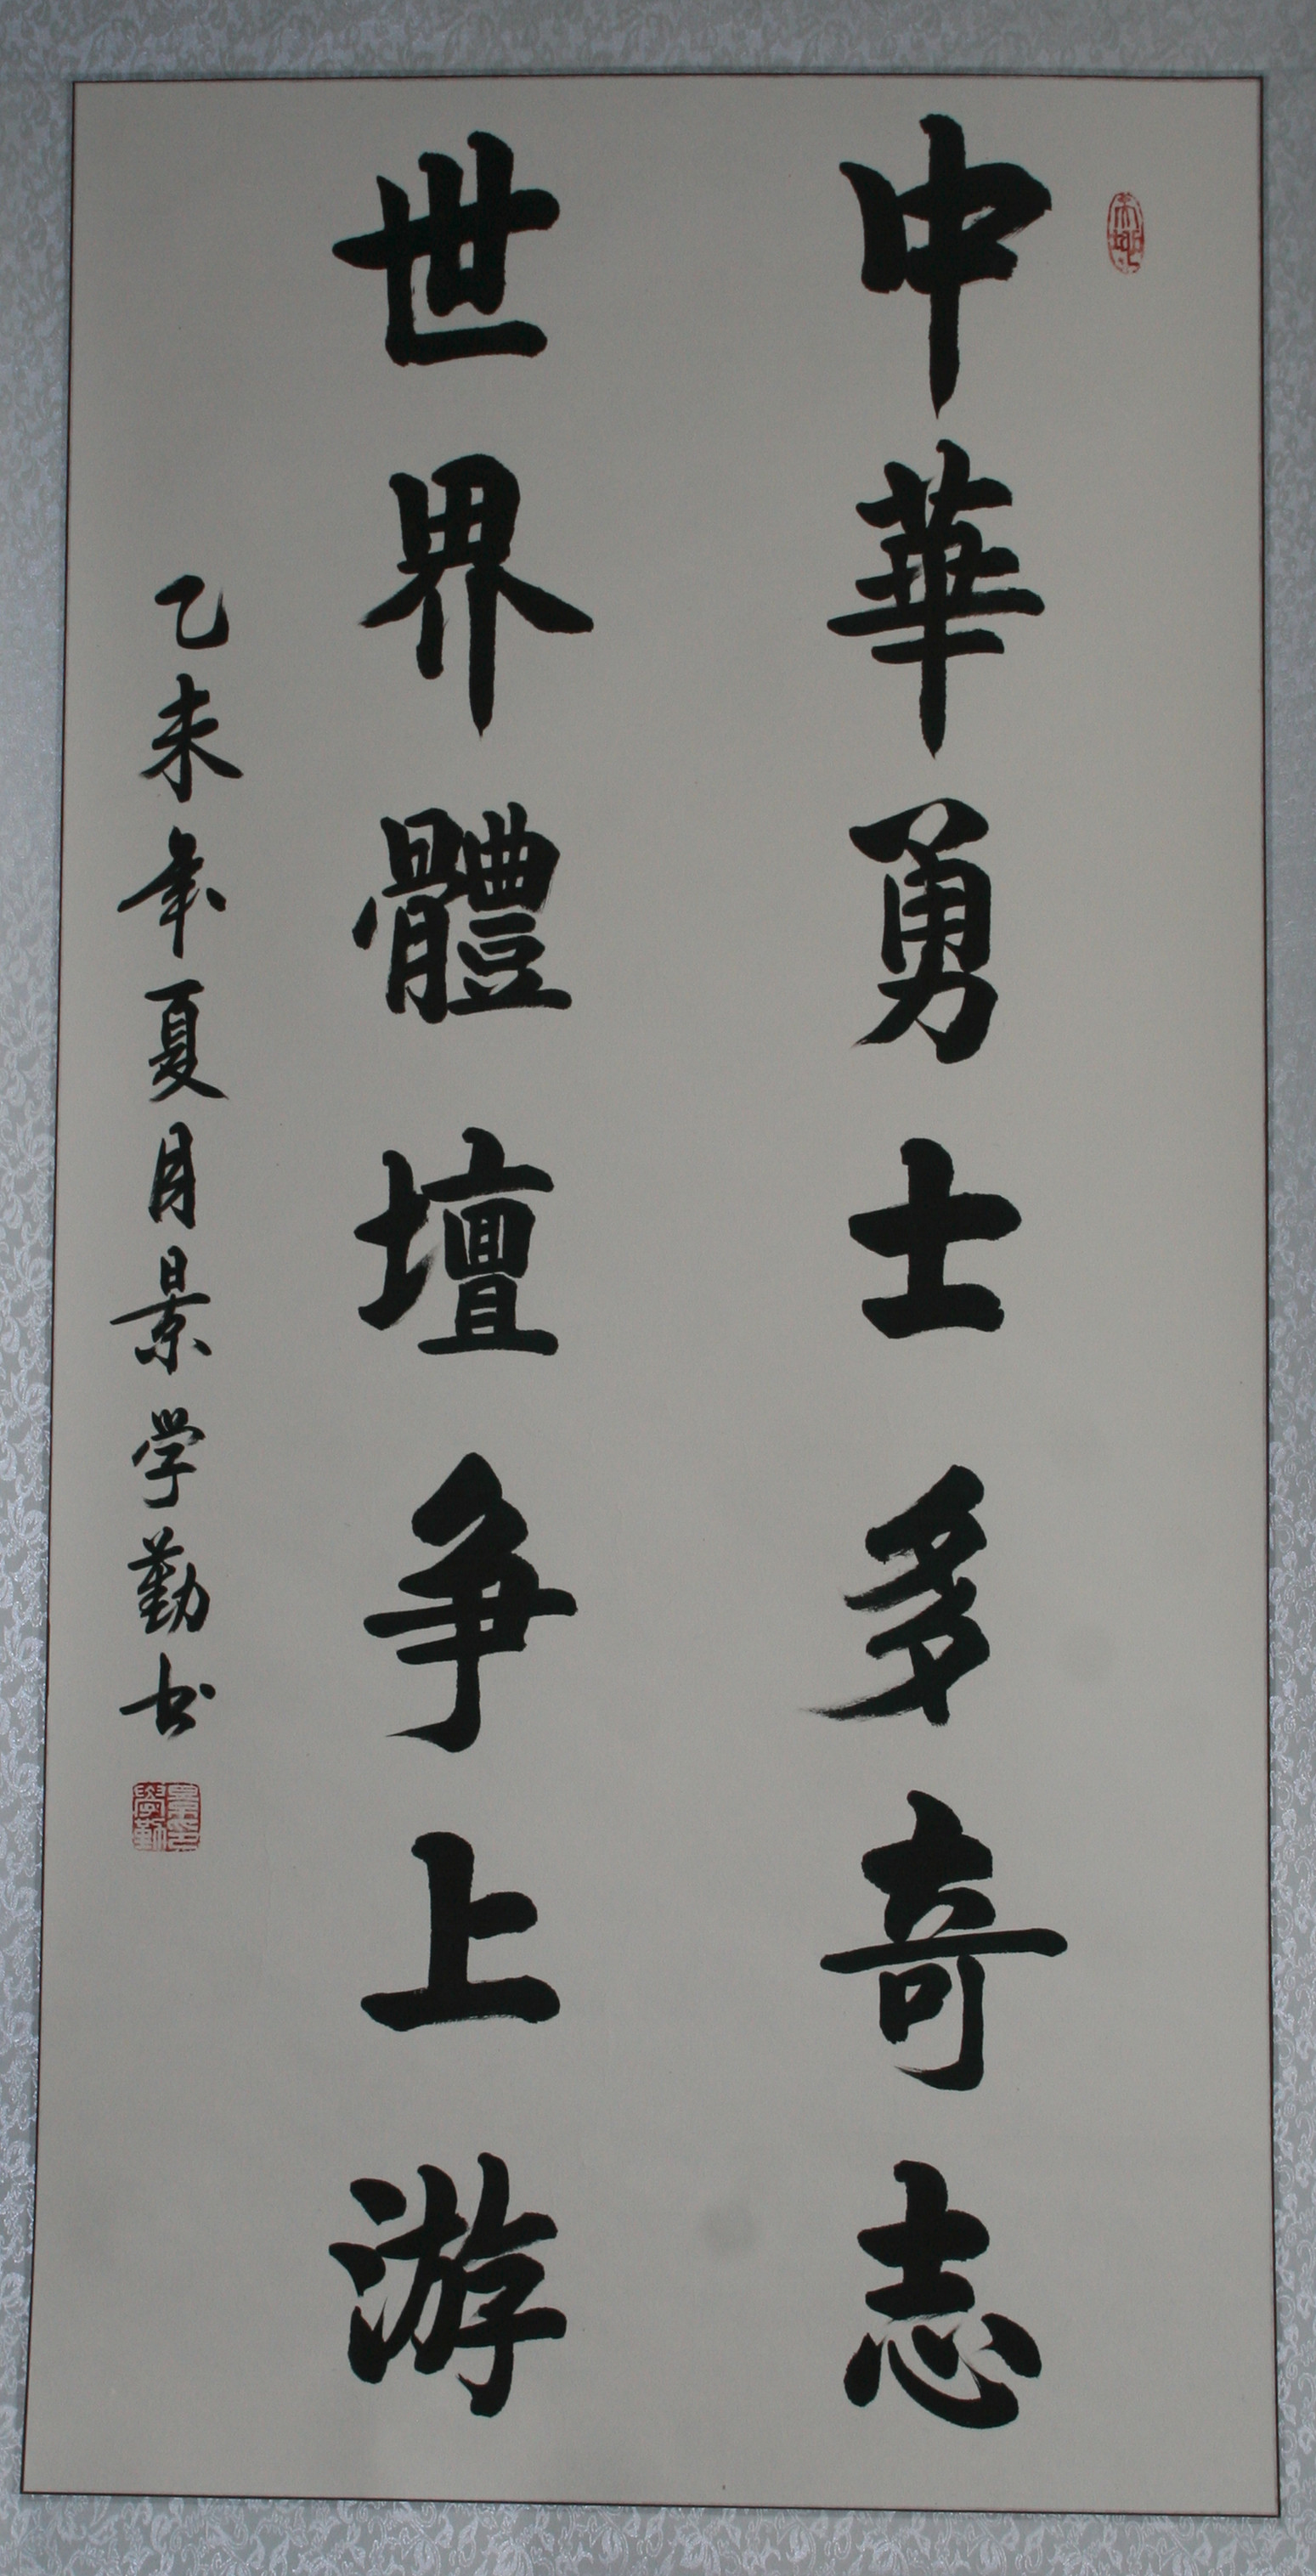 中華勇士多奇志
世界體壇争上游
乙未年夏月景学勤书